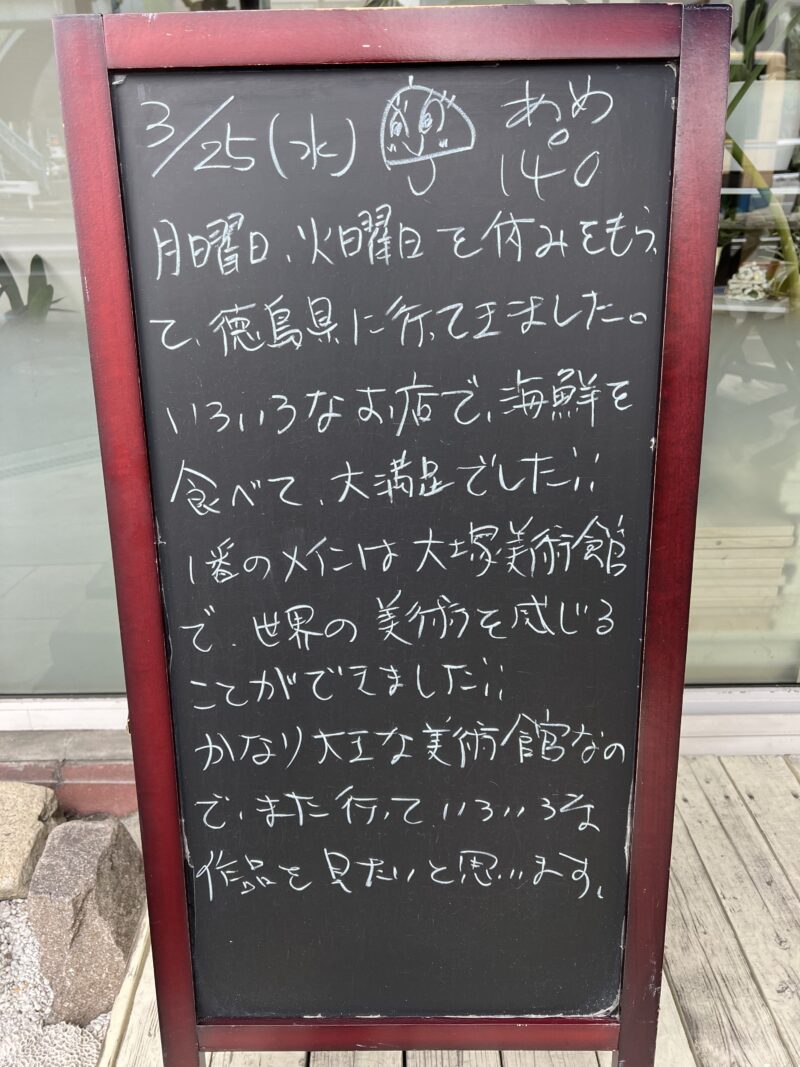 3/25(水) あめ
14°
月曜日、火曜日を休みをもらっ
て、徳島県に行ってきました。
いろいろなお店で、海鮮を
食べて、大満足でした!!
1番のメインは大塚美術館
で、世界の美術を感じる
ことができました!!
かなり大きな美術館なの
で、また行って、いろいろな
作品を見たいと思います。